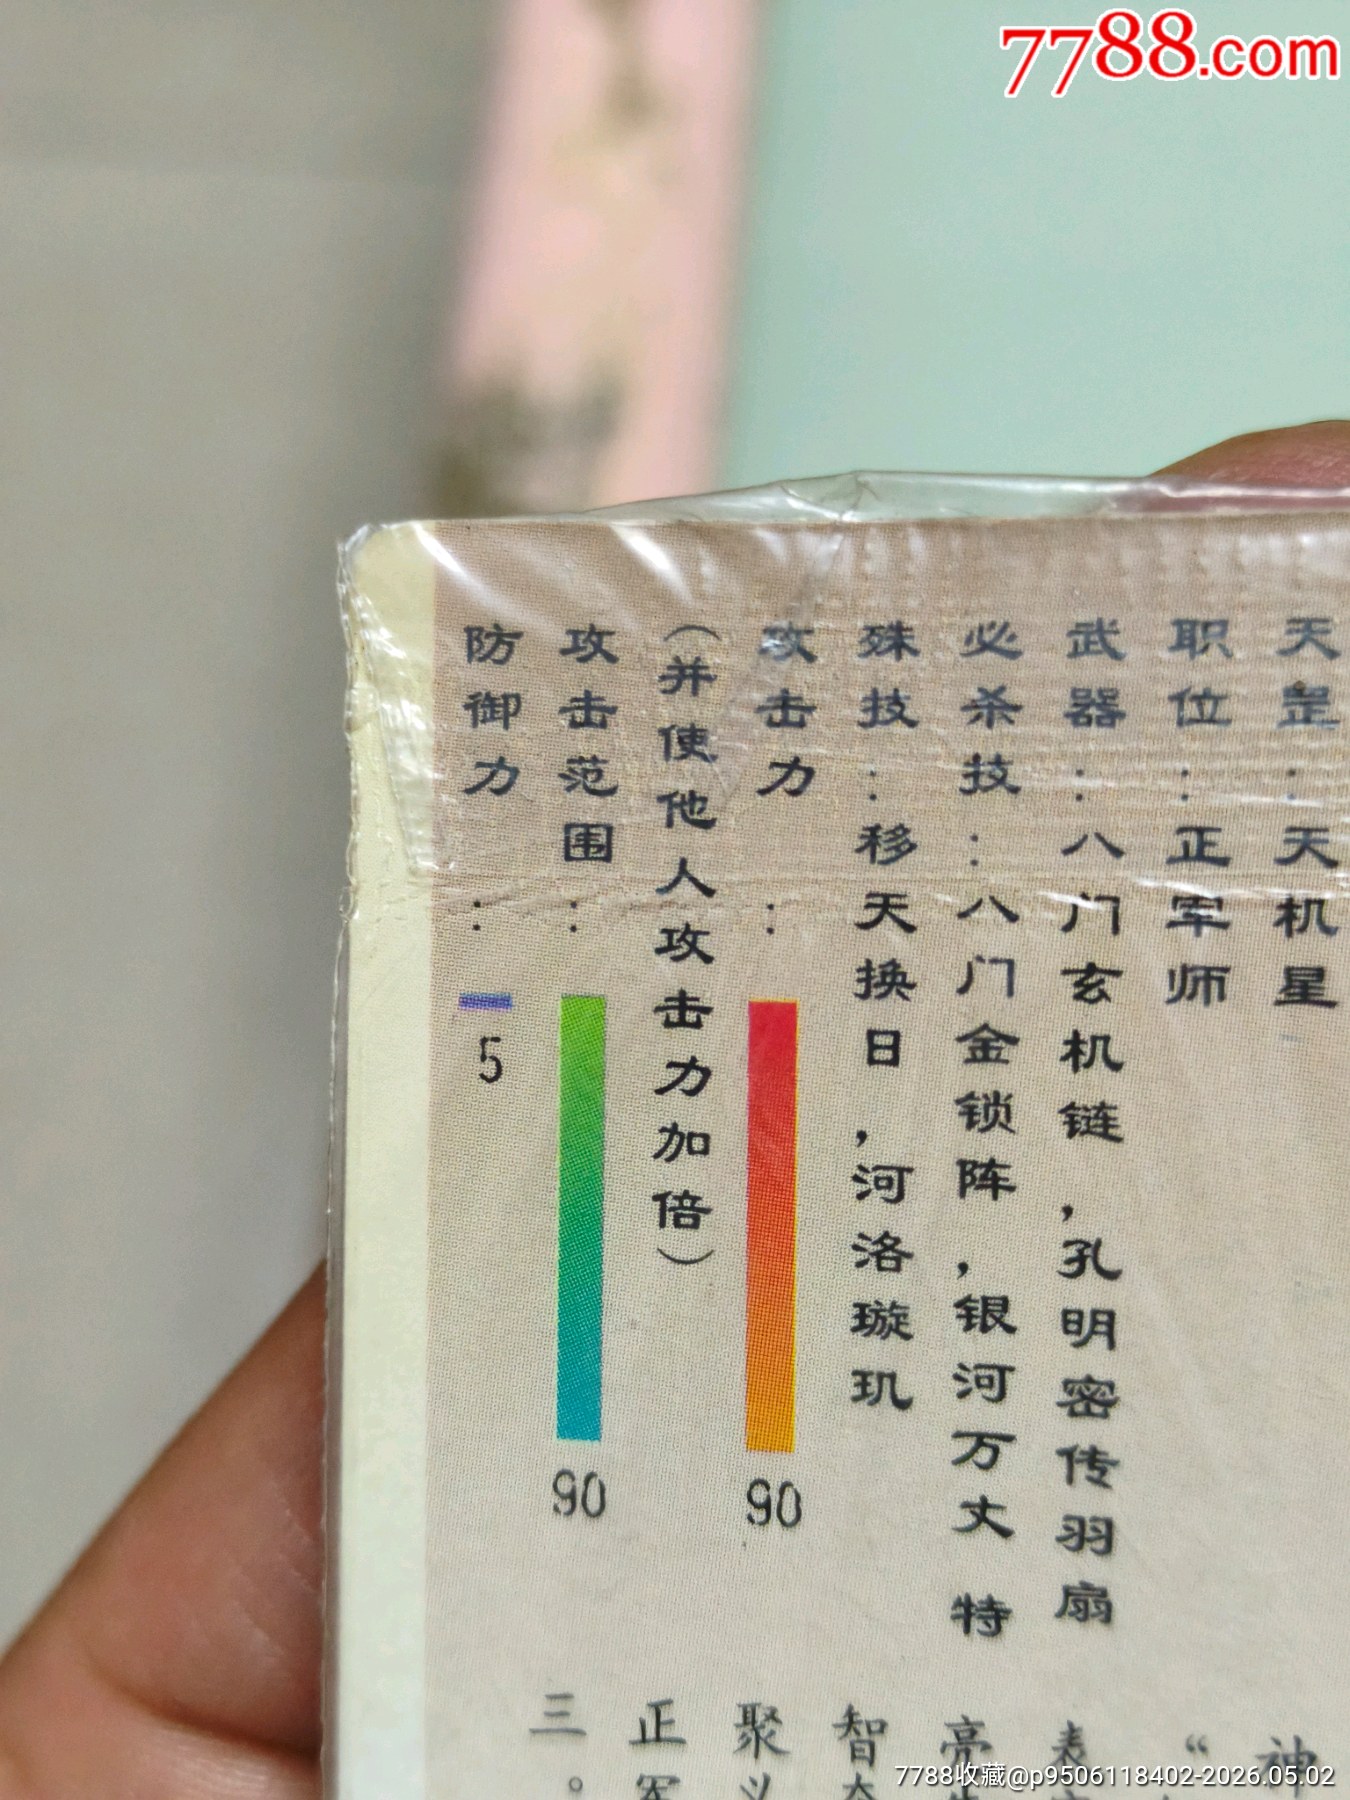 7788.com
天罡:天机星
职位:正军师
武器:八门玄机链,孔明密传羽扇
必杀技:八门金锁阵,银河万丈 特
殊技:移天换日,河洛璇玑
攻击力: 90
(并使他人攻击力加倍)
攻击范围: 90
防御力: 5
神
“
表
亮
智
聚义
正军
三。
7788收藏@p9506118402-2026.05.02